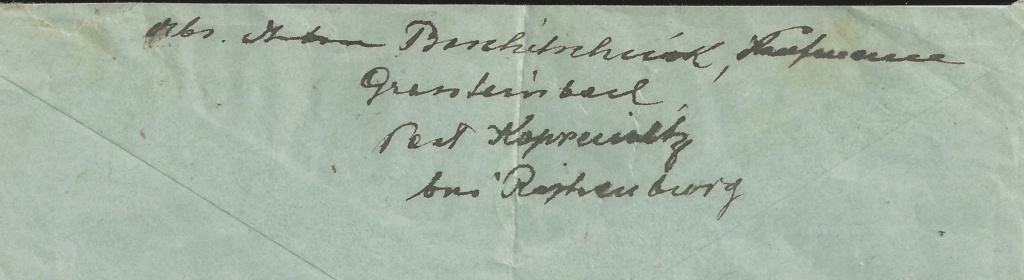 Abs. Anton Boschitschnick, Kaufmann
Grossteinbach,
Post Kapreinitz
bei Rastenburg